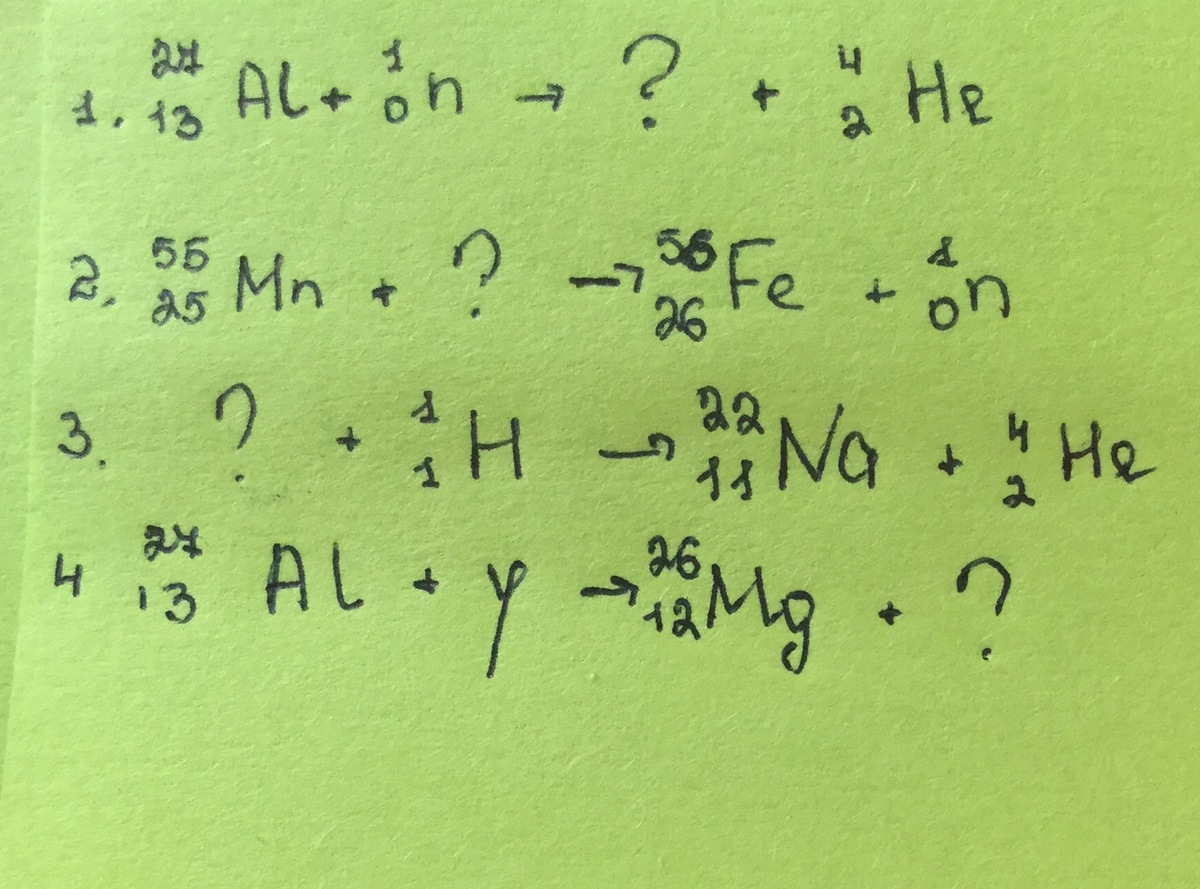 1. ²⁷₁₃Al + ¹₀n → ? + ⁴₂He
2. ⁵⁵₂₅Mn + ? → ⁵⁶₂₆Fe + ¹₀n
3. ? + ¹₁H → ²²₁₁Na + ⁴₂He
4 ²⁷₁₃Al + γ → ²⁶₁₂Mg + ?